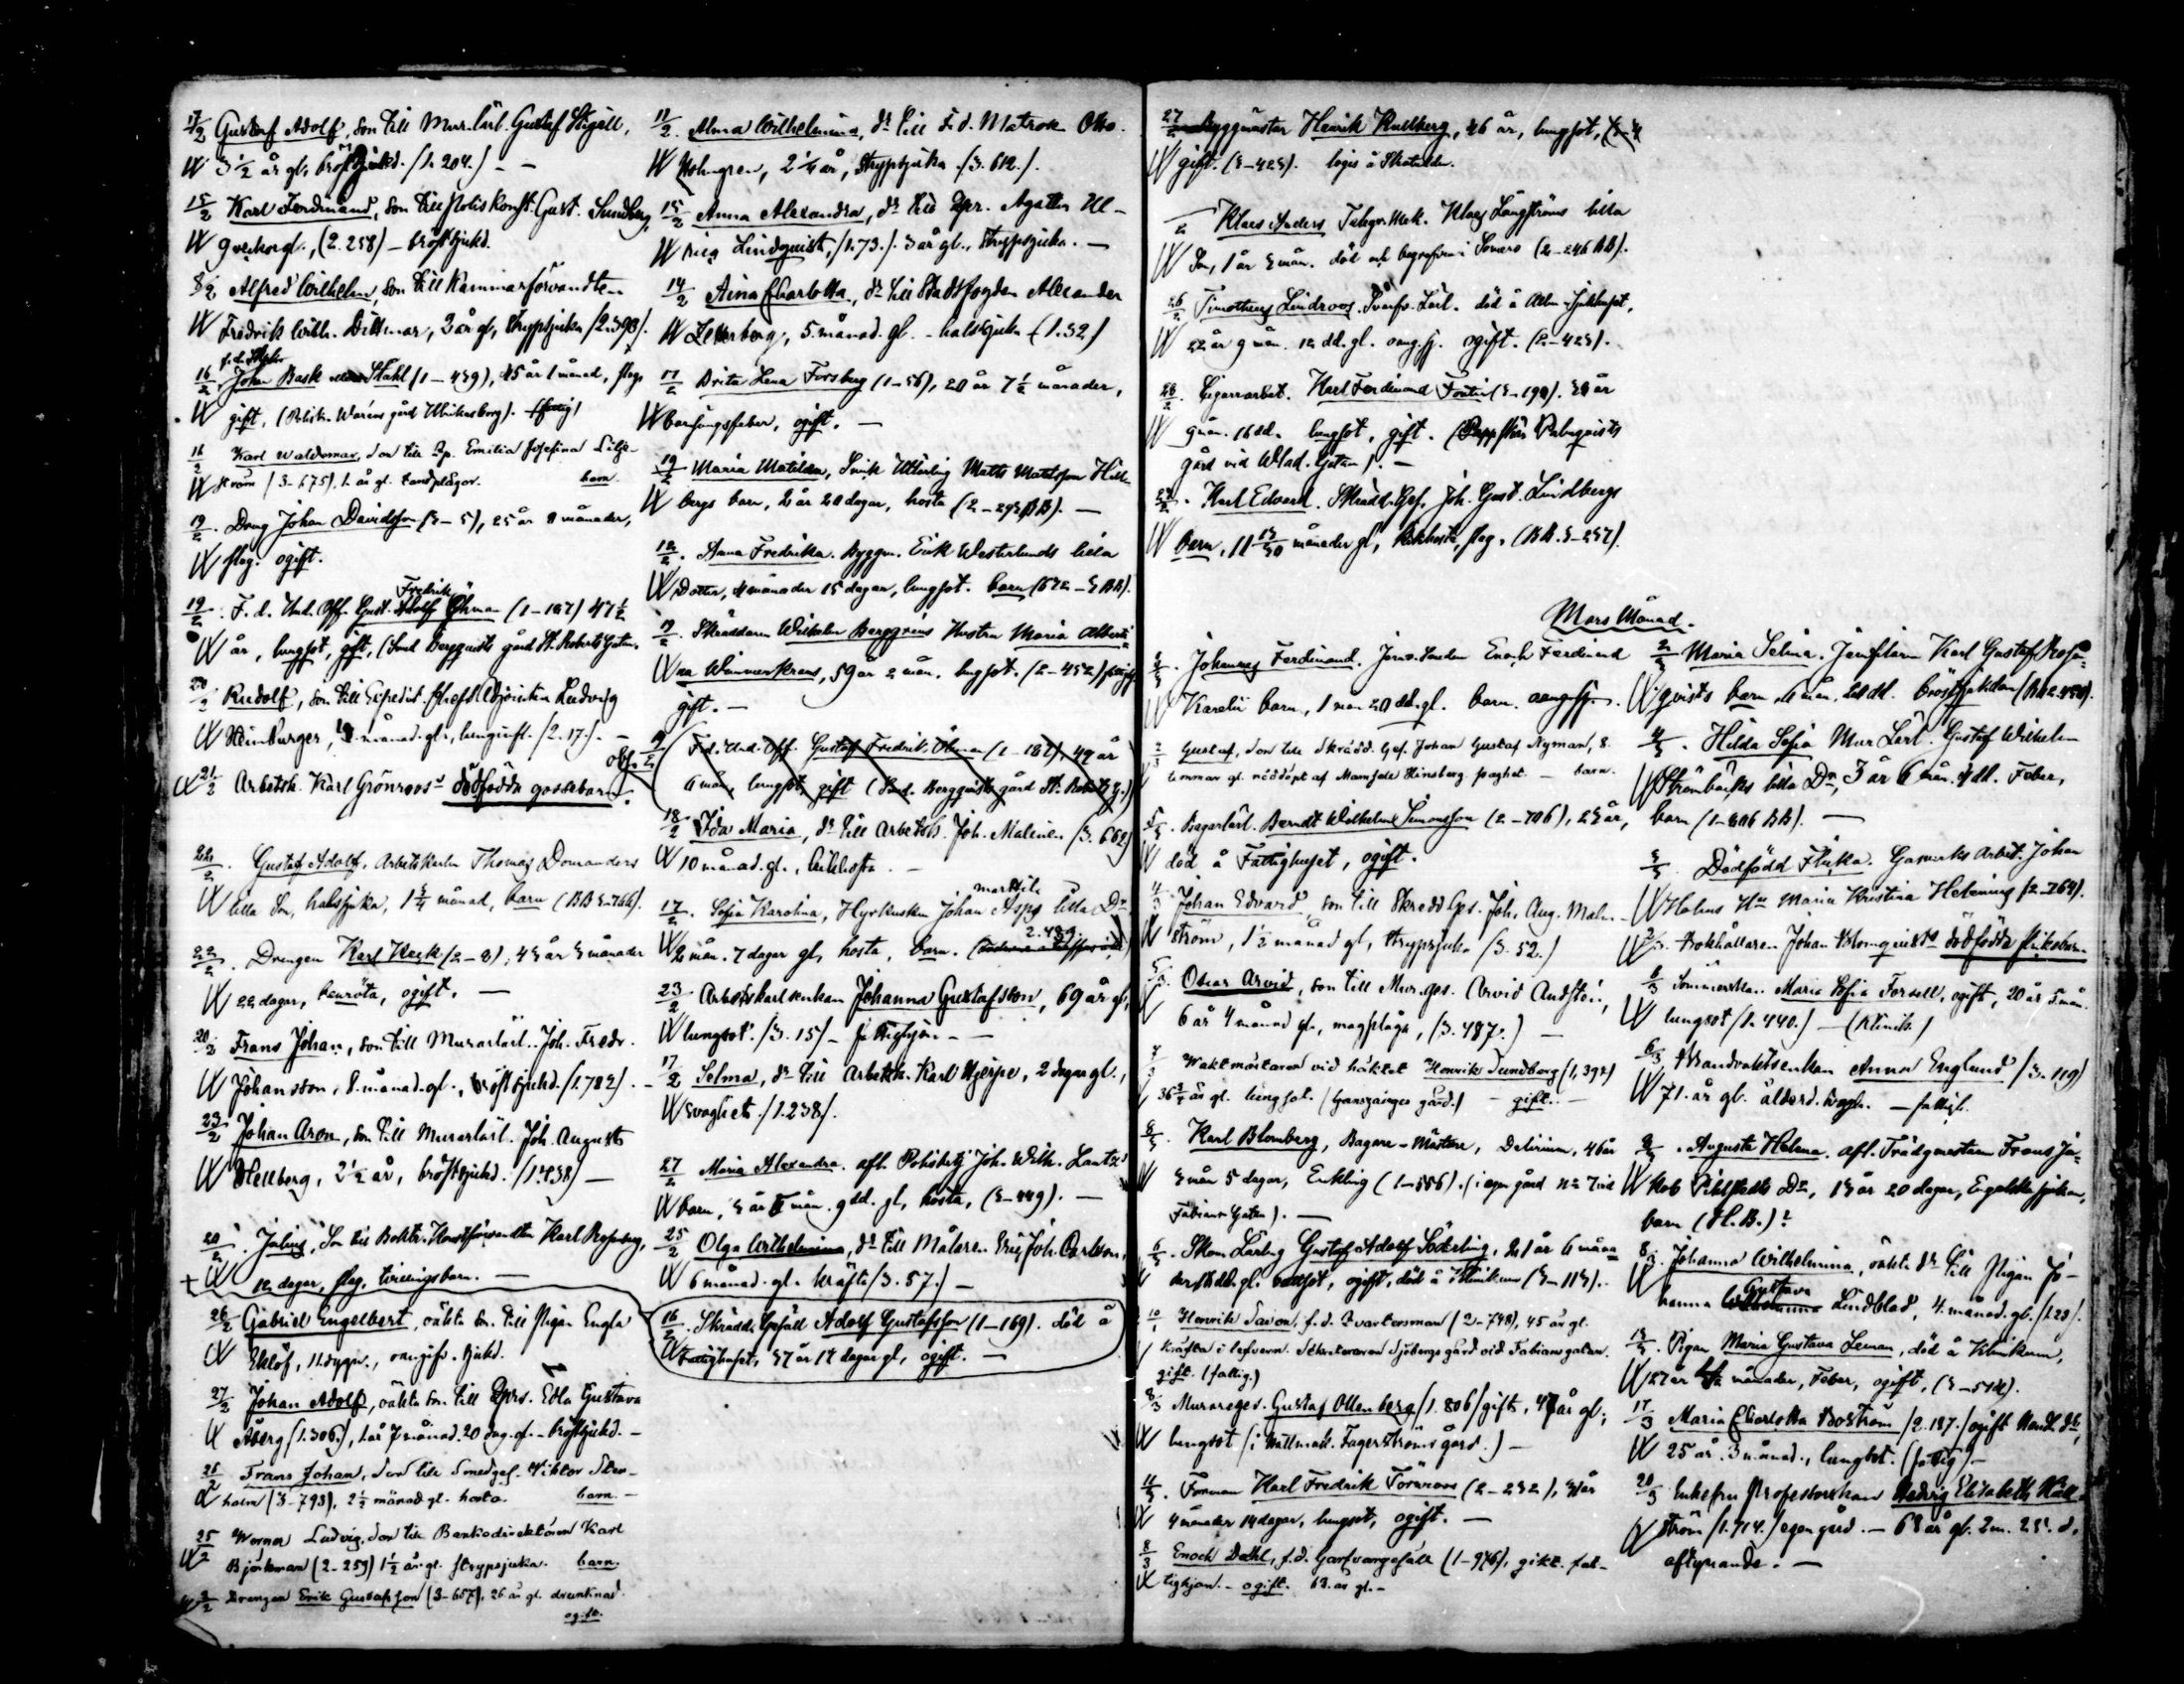 17/2 Gustaf Adolf, son till Mur.lärl. Gustaf
W 3 1/2 år gl, bröstsjukd. (1.204.) - -
15/2 Karl Ferdinand, son till Poliskonst. Gust. Sundberg,
W 9 veckor gl., (2.258) - bröstsjukd.
8/2 Alfred Wilhelm, son till Kammarförvandten
W Fredrik Wilh. Dittmar, 2 år gl, strypsjuka
16/2 Johan Bask Ståhl (1-439), 45 år 1 månad, slag
W gift,
16/2 Karl Waldemar, son till Pp. Emilia Josefina Lilje-
W ström (3-675), 1. år gl. tandplågor. barn.
19/2. Dräng Johan Davidsson (3-5), 25 år 8 månader,
W slag. ogift.
19/2. F. d. Und. Off. Gust. Fredrik Öhman (1-187) 47 1/2
W år, lungsot, gift, (Smed Bergqvists gård St. Roberts gatan.
20/2 Rudolf, son till Expedit. Ludvig
W Heimburger, månad. gl., (2.17.). -
W 21/2 Arbetsk. Karl Grönroos' dödfödda gossebarn.
22/2. Gustaf Adolf, Arbetskarlen Thomas Domanders
W lilla Son, halssjuka, 1 3/4 månad, barn (BB 3-766).
22/2. Drengen Karl Keck (2-8), 43 år 3 månader
W 22 dagar, benröta, ogift. -
20/2 Frans Johan, son till Murarlärl. Joh. Fredr.
W Johansson, 8. månad. gl., bröstsjukd. (1.782). -
23/2 Johan Aron, son till Murarlärl. Joh. Augusts
W Hellberg, 2 1/2 år, bröstsjukd. (1.438) -
20/2. Julius, Son till Boktr. Konstförvandten Karl Rosenberg,
+ W 12 dagar, slag, tvillingsbarn. -
26/2 Gabriel Engelbert, oäkta son till Pigan Engla
W Eklöf, 11. dygn.,
27/2 Johan Adolf, oäkta son till Qprs. Edla Gustava
W Åberg (1.306.), 1. år 7 månad. 20 dag. gl. - bröstsjukd. -
21/2 Frans Johan, son till Smedges. Viktor Sten-
W holm (3-793), 2 1/2 månad gl. hosta. barn. -
25/2 Werner Ludvig, son till Bankodirektören Karl
W Björkman (2-259) 1 1/2 år gl. strypsjuka. barn.
W 2/2 Drengen Erik Gustafsson (3-657), 26 år gl. drunknad.
ogift.
11/2. Alma Wilhelmina, dr till F. d. Matros Otto
W Holmgren, 2 1/4 år, strypsjuka (3.612.).
15/2. Anna Alexandra, dr till Qpr. Agatha Ul-
W rica Lindquist, (1.73.). 3 år gl., strypsjuka. -
14/2 Aina Charlotta, dr till Stadsfogden Alexander
W Zetterberg, 5. månad. gl. - halssjuka (1.32)
17/2 Brita Lena Forsberg (1-56), 20 år 7 1/2 månader,
W barnsängsfeber, ogift. -
19/2 Maria Matilda, Inik Matts Mattsson Hill-
W bergs barn, 2 år 20 dagar, hosta (2-293 BB). -
12/2. Anna Fredrika. Byggm. Erik Westerlunds lilla
W Dotter, 4 månader 15 dagar, lungsot. barn
19/2. Skräddaren Wilhelm Berggréns Hustru Maria Alberti-
W na Wannerkrans, 59 år 2 mån. lungsot. (2-452)
gift. -
19/2 F.d. Und. Off. Gustaf Fredrik Öhman (1-187), 47 år
6 mån, lungsot, gift (Smed. Bergqvists gård St. Roberts g.)
18/2 Ida Maria, dr till Arbetsk. Joh. Malinen (3.662)
W 10 månad. gl., kikhosta. -
17/2. Sofia Karolina, Hyrkusken Johan Asps lilla Dr
W 2 mån. 7 dagar gl, hosta, barn. 2.489.
23/2 Arbetskarlsenkan Johanna Gustafsson, 69 år gl,
W lungsot. (3.15) - fattighjon. - -
17/2 Selma, dr till Arbetsk. Karl Hjerpe, 2 dagar gl.,
W svaghet. (1.238).
27/2 Maria Alexandra. afl. Polisbetj. Joh. Wilh. Lantz'
W barn, 3 år mån. 9 dd. gl, hosta, (3-449). -
25/2 Olga Wilhelmina, dr till Målaren Erik Joh. Carlsson,
W 6 månad. gl. kräfta (3.57.) -
16/2. Skrädd. Gesäll Adolf Gustafsson (1-169). död å
W Fattighuset, 37 år 17 dagar gl, ogift. -
27/2 Byggmäster Henrik Kullberg, 46 år, lungsot,
W gift. (3-423). logis å Skatudden.
/2 Klaes Anders Telegr. Mek. Klaes Långströms lilla
W Son, 1 år 3 mån. död och begrafven i Somero (2-246 BB).
26/2 Timotheus Lindroos. Svarfv. Lärl. död å Allm. Sjukhuset,
W 22 år 9 mån. 12 dd. gl. ogift. (2-423).
28/2. Cigarrarbet. Karl Ferdinand Fontin (3-190). 30 år
W 9 mån. 16 dd. lungsot, gift. Palmqvists
gård vid Wlad. Gatan). -
27/2. Karl Edvard. Skrädd. Ges. Joh. Gust. Lindbergs
W barn, 11 13/30 månader gl, kikhosta, slag. (BB. 3-257).
Mars Månad.
2/3. Johannes Ferdinand. Enoch Ferdinand
W Karelii barn, 1 mån 20 dd. gl. barn.
2/3 Gustaf, son till Skrädd. Ges. Johan Gustaf Nyman, 8.
W timmar gl. nöddöpt af Mamsell Hinsberg. svaghet. - barn.
5/3. Bagarlärl. Berndt Wilhelm Simonsson (2-706), 23 år,
W död å Fattighuset, ogift.
4/3 Johan Edvard, son till Skredd. Ges. Joh. Aug. Malm-
W ström, 1 1/2 månad gl, strypsjuka (3.52.)
5/3. Oscar Arvid, son till Mur.ges. Arvid Andstén,
W 6 år 4 månad gl., magplåga, (3.487.) -
7/3 Waktmästaren vid häktet Henrik Sundberg (1,392)
W 36 3/4 år gl. lungsot. - gift. -
8/3. Karl Blomberg, Bagare-Mästare, Delirium, 46 år
W 3 mån 5 dagar, Enkling (1-556). (i egen gård No 7 vid
Fabians Gatan). -
6/3. Skom. Lärling Gustaf Adolf Söderling, 21 år 6 måna-
W der gl. ogift, död å Klinikum (3-113).
10/3 Henrik Savon, f.d. Qvartersman (2-748), 45 år gl.
W Kräfta i lefvern. Sekreteraren Sjöbergs gård vid Fabiansgatan.
gift. (fattig.)
8/3 Murareges. Gustaf Ollenberg (1.806) gift, 47 år gl;
W lungsot (i Fagerströms gård.) -
4/3. Forman Karl Fredrik Törnroos (2-232), 31 år
W 4 månader 14 dagar, lungsot, ogift. -
8/3 Enoch Dahl, f.d. Garfvaregesäll (1-976), gikt. fat-
W tighjon. - ogift. 63. år gl. -
2/3 Maria Selma. Karl Gustaf Rosen-
W qvists barn mån. 20 dd.
4/3. Hilda Sofia Mur Lärl. Gustaf Wilhelm
W Strömbäcks lilla Dr, 3 år 6 mån. dd. Feber,
barn (1-606 BB). -
3/3. Dödfödd Flicka. Gasverks Arbet. Johan
W Holms Hu Maria Kristina Helenius (2-764).
W 2/3. Bokhållaren Johan Blomqvists dödfödda flickebarn
6/3 Sömmerskan Maria Sofia Forsell, ogift, 20 år 5 mån.
W lungsot (1.440.) - (Klinik.)
6/3 Brandvaktsenkan Anna Englund (3.119)
W 71. år gl. ålderd. svagh. - fattigh.
9/3. Augusta Helena. afl. Trädgmästaren Frans Ja-
W kob Pihlstedts Dr, 13 år 20 dagar, Engelska sjukan,
barn (H.B.)?
8/3. Johanna Wilhelmina, oäkta dr till Pigan Jo-
W hanna Gustava Lindblad, 4. månad. gl. (1.23).
13/3. Pigan Maria Gustava Leman, död å Klinikum,
W 27 år månader, Feber, ogift, (3-512).
17/3 Maria Charlotta Boström (2.187.) ogift Handl. dr,
W 25 år. 3 månad., lungsot. (fattig) -
20/3 Enkefru Professorskan Hedvig Elisabeth Häll-
W ström (1.714.) egen gård. - 68 år gl. 2 m. 25. d.
aftynande. -